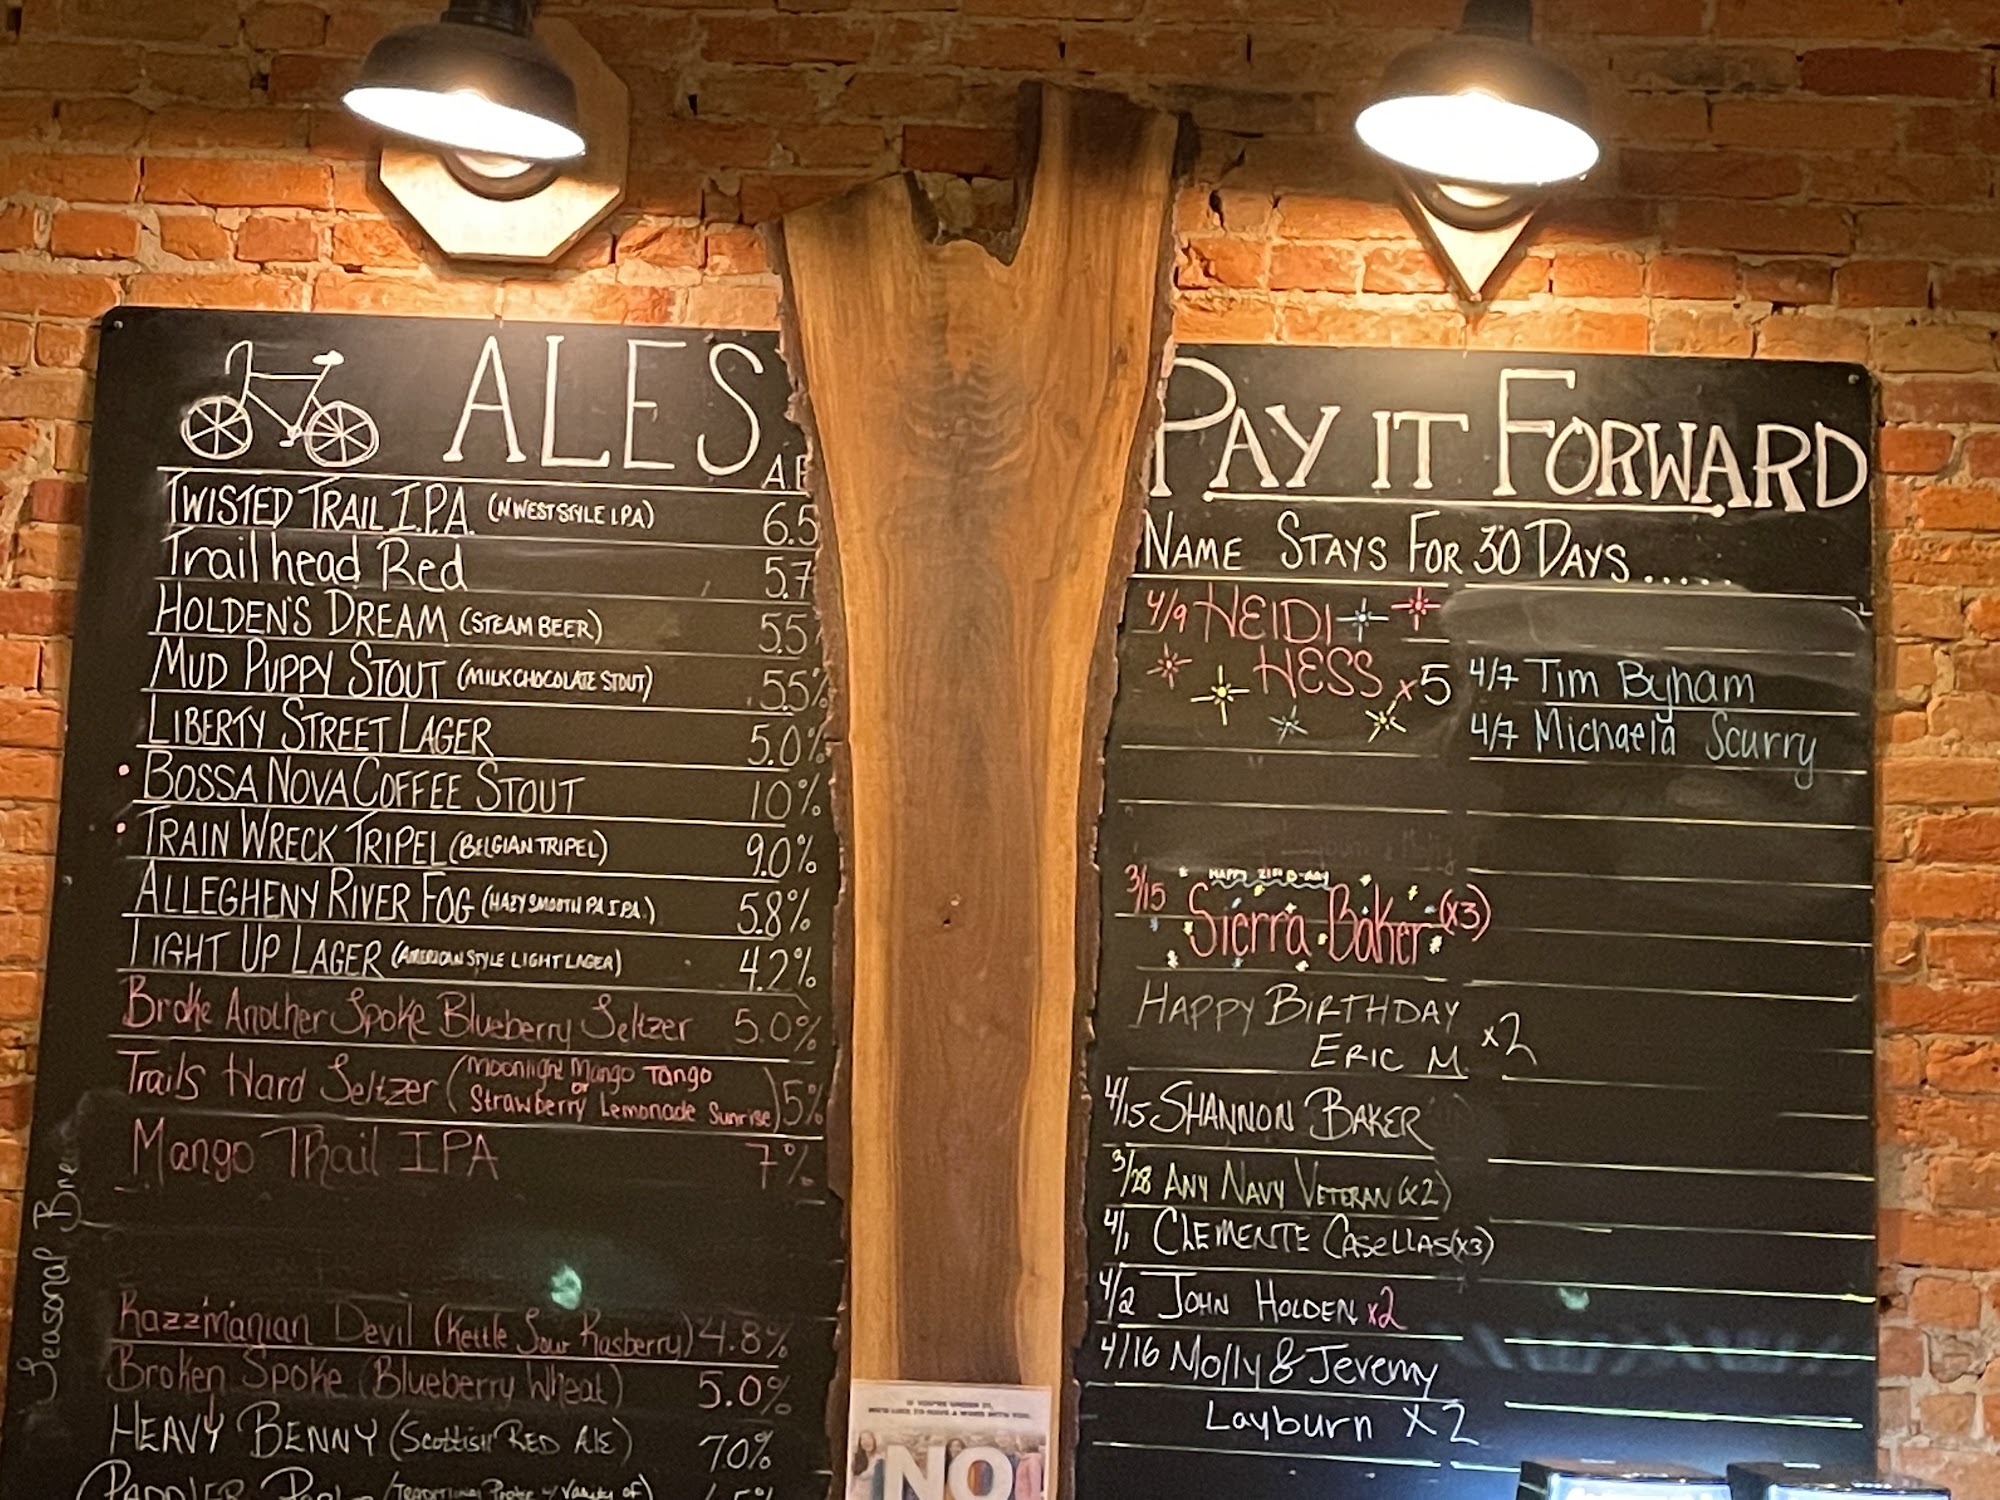 ALES
TWISTED TRAIL I.P.A. (N WEST STYLE I.P.A) 6.5
Trailhead Red 5.7
HOLDEN'S DREAM (STEAM BEER) 5.5
MUD PUPPY STOUT (MILK CHOCOLATE STOUT) 5.5%
LIBERTY STREET LAGER 5.0%
• BOSSA NOVA COFFEE STOUT 10%
• TRAIN WRECK TRIPEL (BELGIAN TRIPEL) 9.0%
ALLEGHENY RIVER FOG (HAZY SMOOTH PA I.P.A.) 5.8%
LIGHT UP LAGER (AMERICAN STYLE LIGHT LAGER) 4.2%
Broke Another Spoke Blueberry Seltzer 5.0%
Trails Hard Seltzer (Moonlight Mango Tango
or
Strawberry Lemonade Sunrise) 5%
Mango Thail IPA 7%
Seasonal
Razzmanian Devil (Kettle Sour Rasberry) 4.8%
Broken Spoke (Blueberry Wheat) 5.0%
HEAVY BENNY (Scottish RED Ale) 7.0%
PAY IT FORWARD
NAME STAYS FOR 30 DAYS.....
4/9 HEIDI
HESS x5
HAPPY 21st B-DAY
3/15 Sierra Baker (x3)
HAPPY BIRTHDAY
ERIC M x2
4/15 SHANNON BAKER
3/28 ANY NAVY VETERAN (x2)
4/1 CLEMENTE CASELLAS (x3)
4/2 JOHN HOLDEN x2
4/16 Molly & Jeremy
Layburn x2
4/7 Tim Byham
4/7 Michaela Scurry
IF YOU'RE UNDER 21,
WE'D LIKE TO HAVE A WORD WITH YOU.
NO